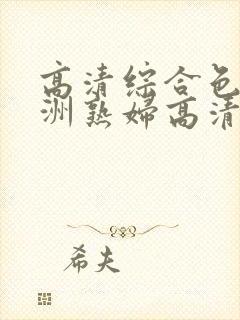 高清综合色
洲熟妇高清
希夫